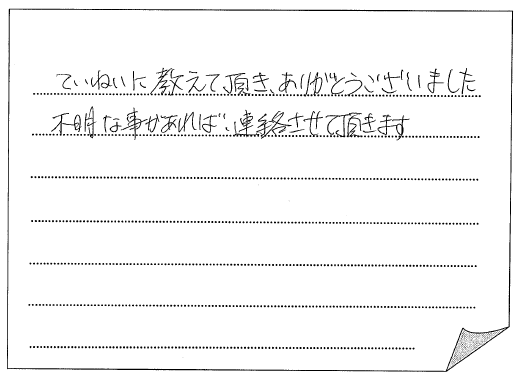 ていねいに教えて頂き、ありがとうございました
不明な事があれば、連絡させて頂きます